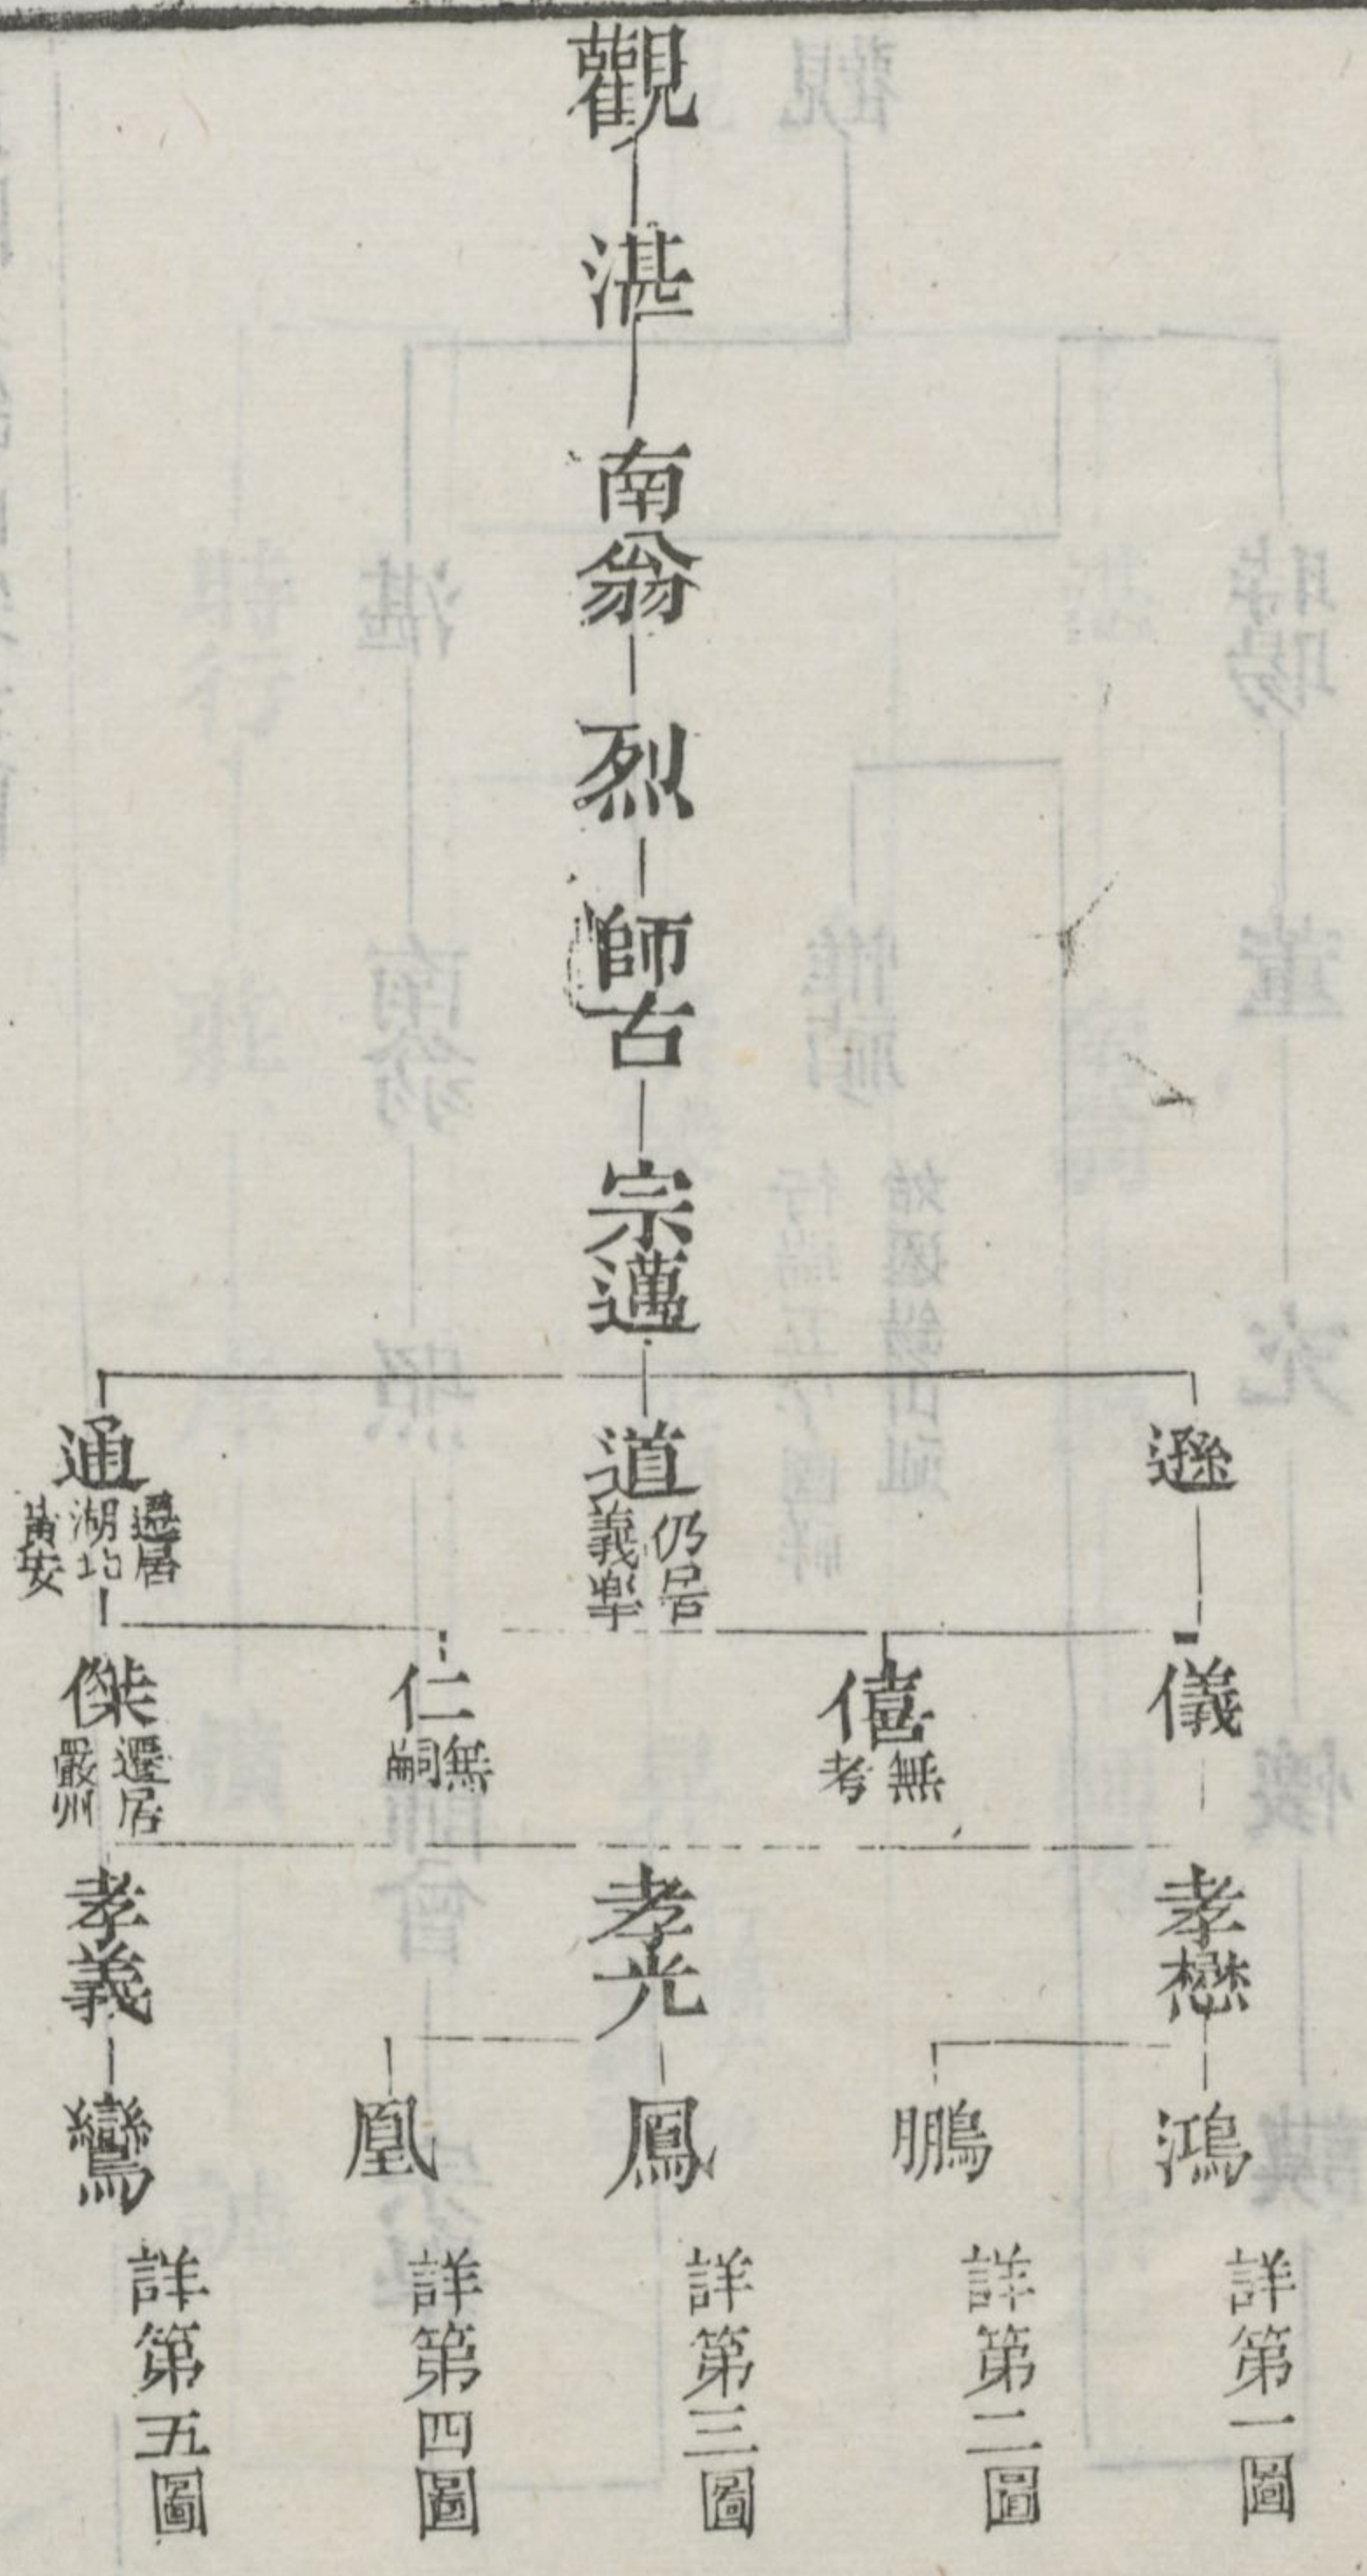 觀
湛
南翁
烈
師古
宗邁
遜
道
仍居
義學
通
遷居
湖北
黃安
儀
僖
無
考
仁
無
嗣
傑
遷居
嚴州
孝懋
孝光
孝義
鴻
鵬
鳳
凰
鸞
詳第一圖
詳第二圖
詳第三圖
詳第四圖
詳第五圖